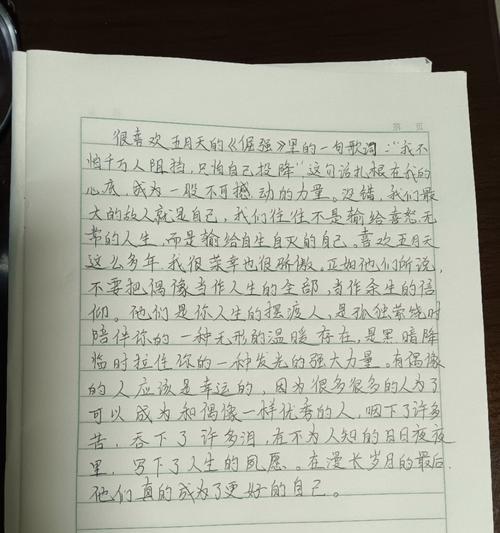 第 页
很喜欢五月天的《倔强》里的一句歌词:“我不
怕千万人阻挡,只怕自己投降”这句话扎根在我的
心底,成为一股不可撼动的力量。没错,我们最
大的敌人就是自己,我们往往不是输给喜怒无
常的人生,而是输给自生自灭的自己。喜欢五月天
这么多年,我很荣幸也很骄傲。正如他们所说,
不要把偶像当作人生的全部,当作余生的信
仰。他们是你人生的摆渡人,是孤独萦绕时
陪伴你的一种无形的温暖存在,是黑暗降
临时拉住你的一种发光的强大力量。有偶像
的人应该是幸运的,因为很多很多的人为了
可以成为和偶像一样优秀的人,咽下了许多
苦,吞下了许多泪,在不为人知的日日夜夜
里,写下了人生的夙愿。在漫长岁月的最后,
他们真的成为了更好的自己。